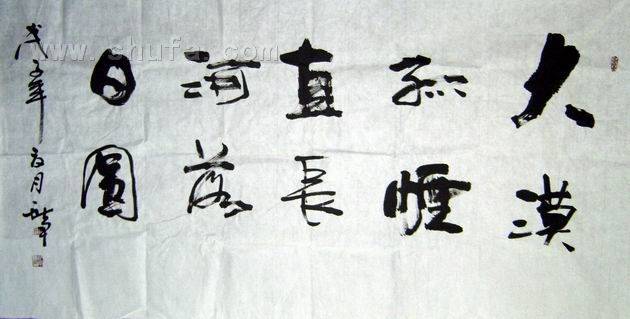 大漠
孤煙
直長
河落
日圓
戊子年
www.shufa.com